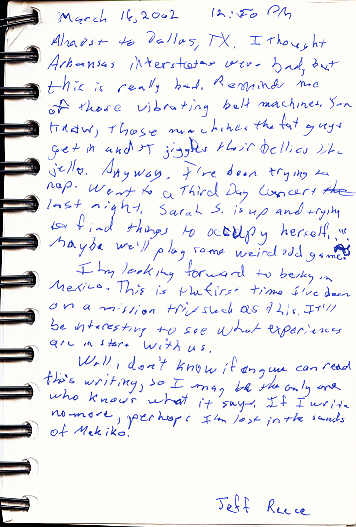 March 16, 2002 12:50 PM
Almost to Dallas, TX. I thought
Arkansas interstates were bad, but
this is really bad. Reminds me
of those vibrating belt machines. You
know, those machines the fat guys
get in and it jiggles their bellies like
jello. Anyway. I've been trying to
nap. Went to a Third Day Concert the
last night. Sarah S. is up and trying
to find things to occupy herself...
Maybe we'll play some weird odd games
I'm looking forward to being in
Mexico. This is the first time I've been
on a mission trip such as this. It'll
be interesting to see what experiences
are in store with us.
Well, I don't know if anyone can read
this writing, so I may be the only one
who knows what it says. If I write
no more, perhaps I'm lost in the sands
of Mekiko.
Jeff Reece